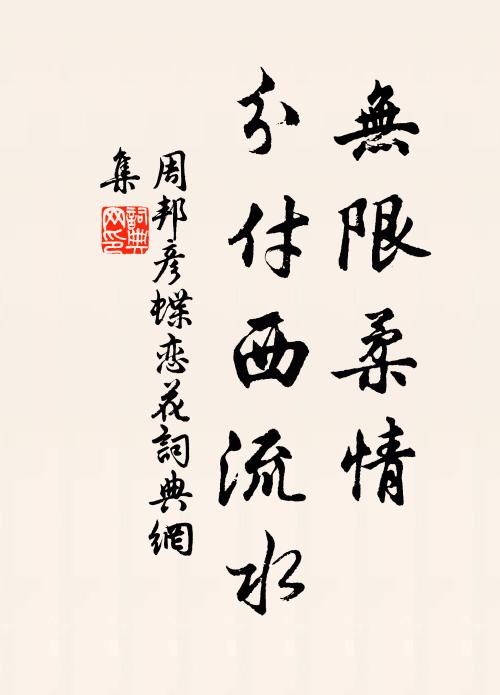 無限柔情
分付西流水
周邦彦蝶恋花詞典網
集
詞典
网印